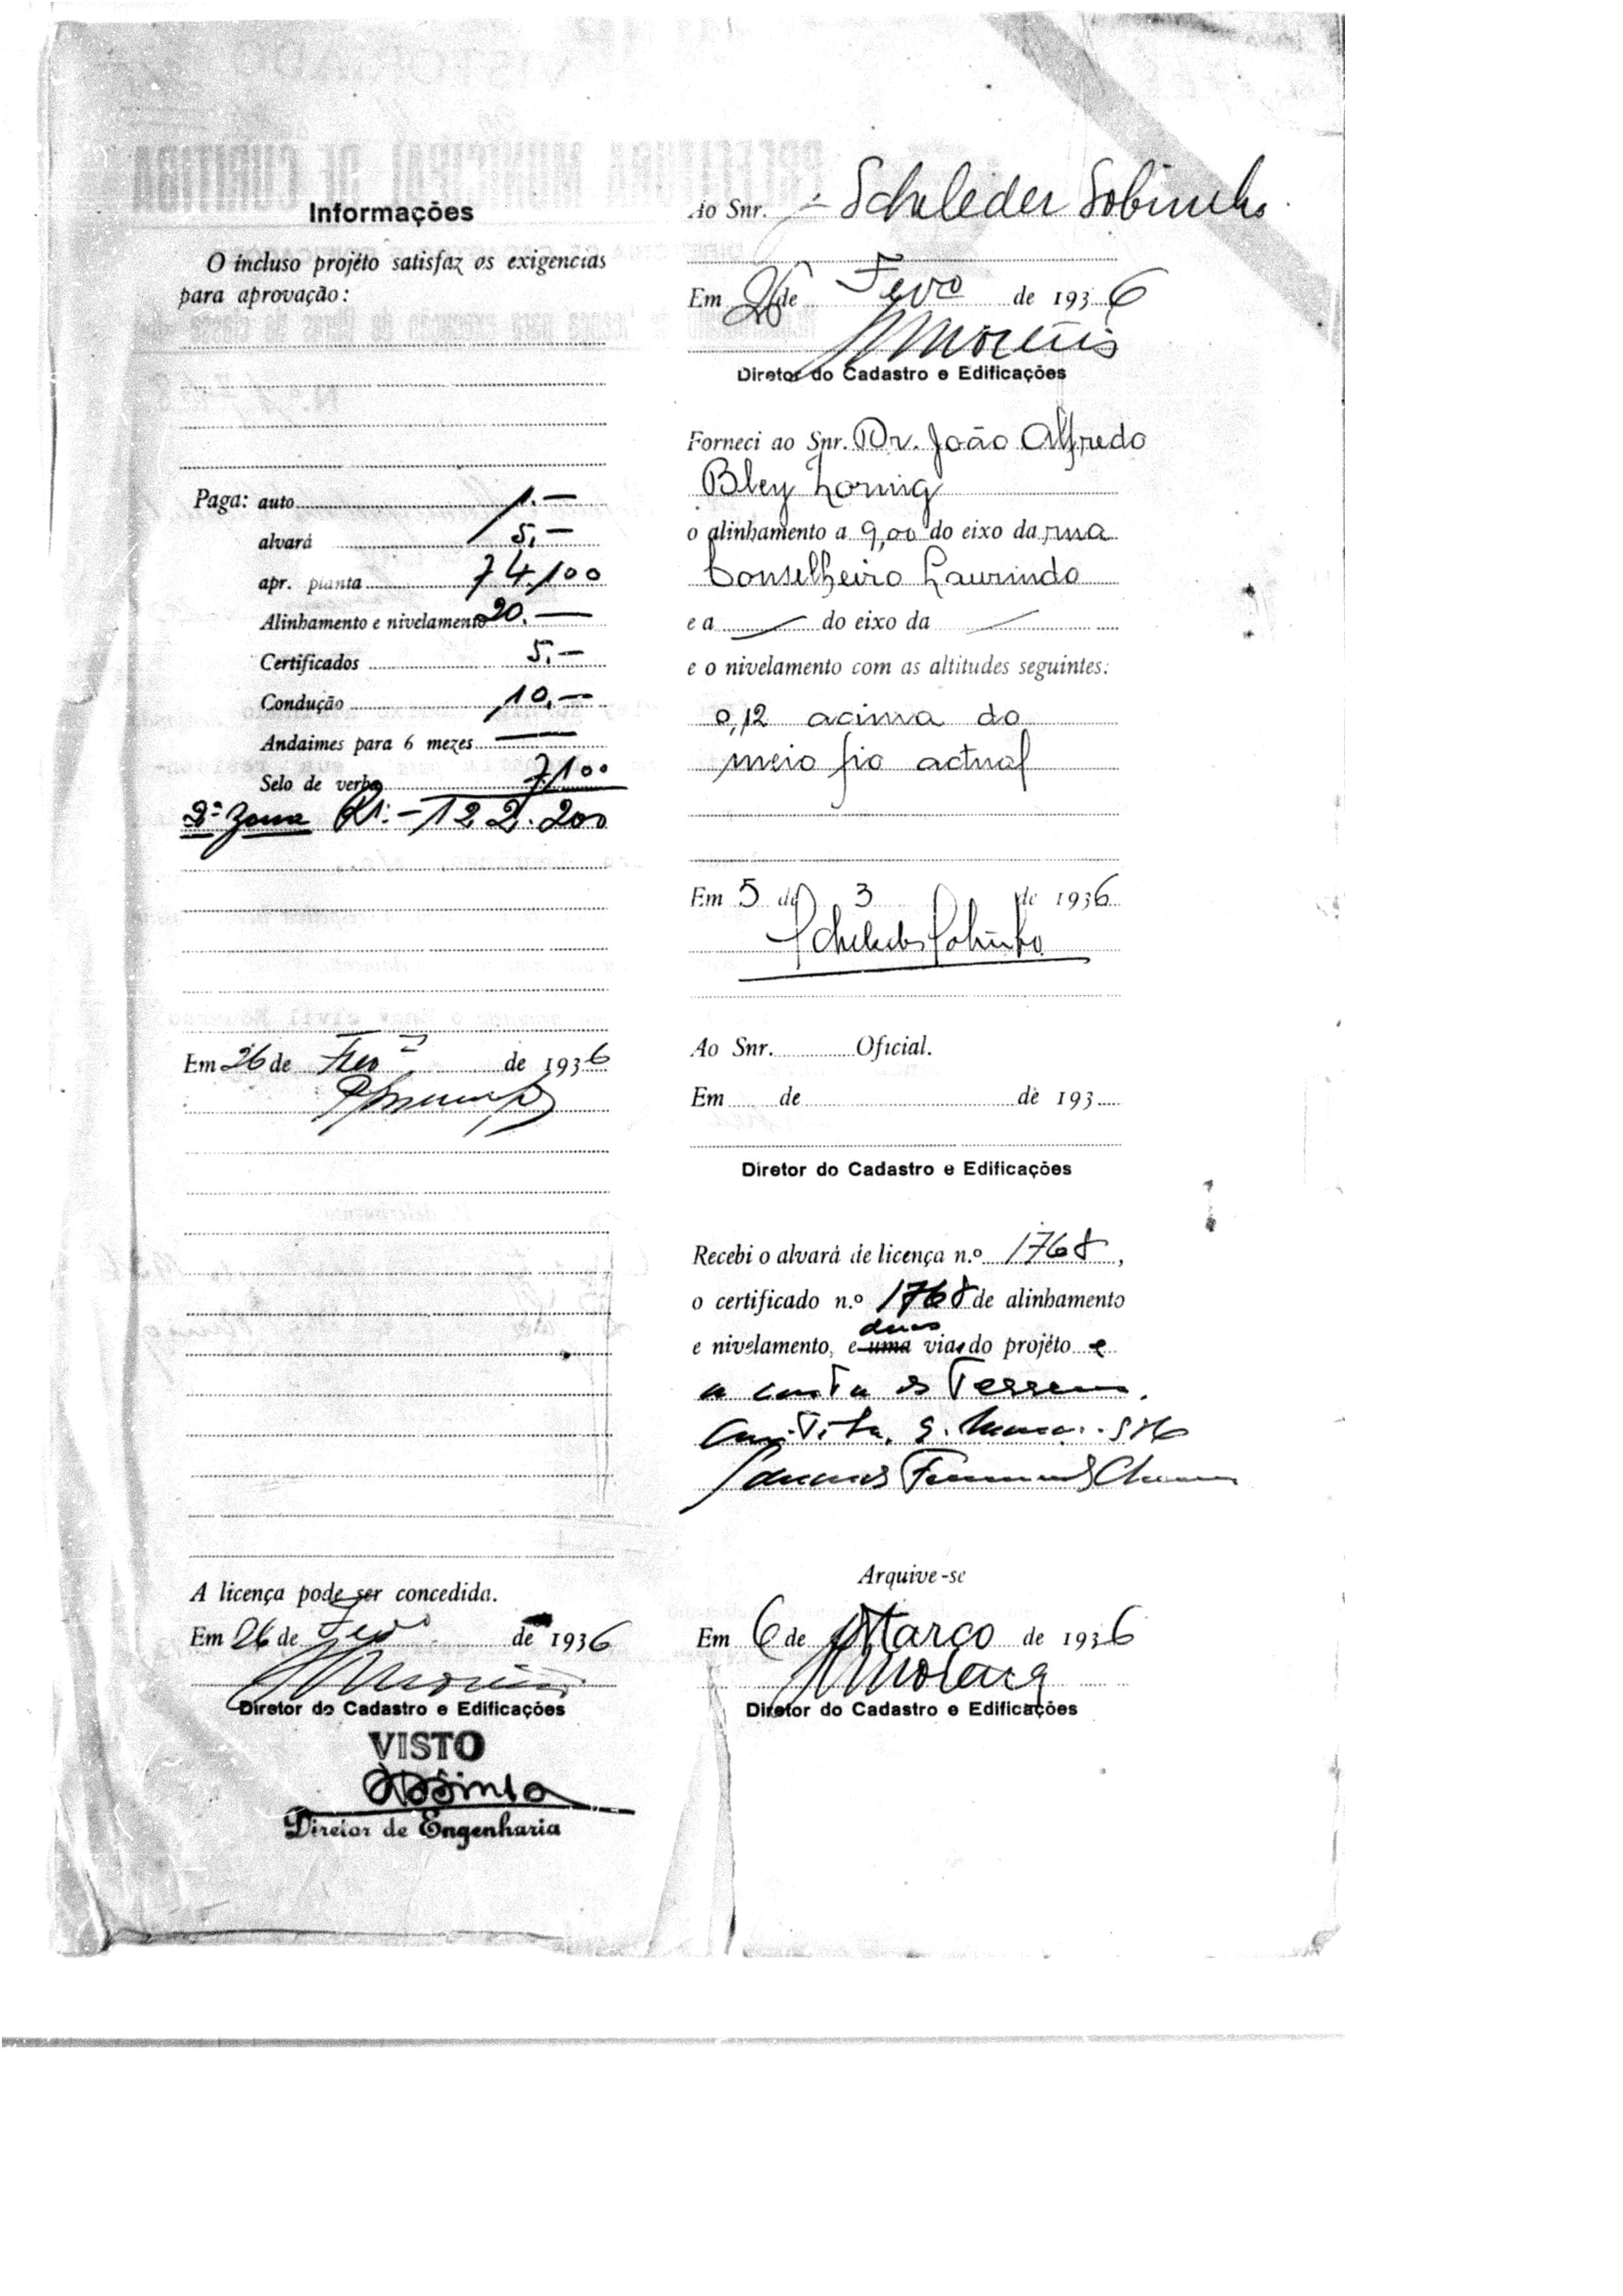 Informações
O incluso projéto satisfaz os exigencias
para aprovação:
Paga: auto 1.—
alvará 5.—
apr. planta 74.100
Alinhamento e nivelamento 20.—
Certificados 5.—
Condução 10.—
Andaimes para 6 mezes —
Selo de verba 7.100
2ª zona Rs.- 122.200
Em 26 de Fevo de 1936
A licença pode ser concedida.
Em 26 de Fevo de 1936
Diretor do Cadastro e Edificações
VISTO
Diretor de Engenharia
Ao Snr. Schleder Sobinho
Em 26 de Fevo de 1936
Diretor do Cadastro e Edificações
Forneci ao Snr. Dr. João Alfredo
Bley Zornig
o alinhamento a 9,00 do eixo da rua
Conselheiro Laurindo
e a — do eixo da —
e o nivelamento com as altitudes seguintes:
0,12 acima do
meio fio actual
Em 5 de 3 de 1936
Schleder Sobinho
Ao Snr. Oficial.
Em de de 193
Diretor do Cadastro e Edificações
Recebi o alvará de licença n.º 1768,
o certificado n.º 1768 de alinhamento
duas
e nivelamento, e uma vias do projéto e
Arquive-se
Em 6 de Março de 1936
Diretor do Cadastro e Edificações
PREFEITURA MUNICIPAL DE CURITIBA